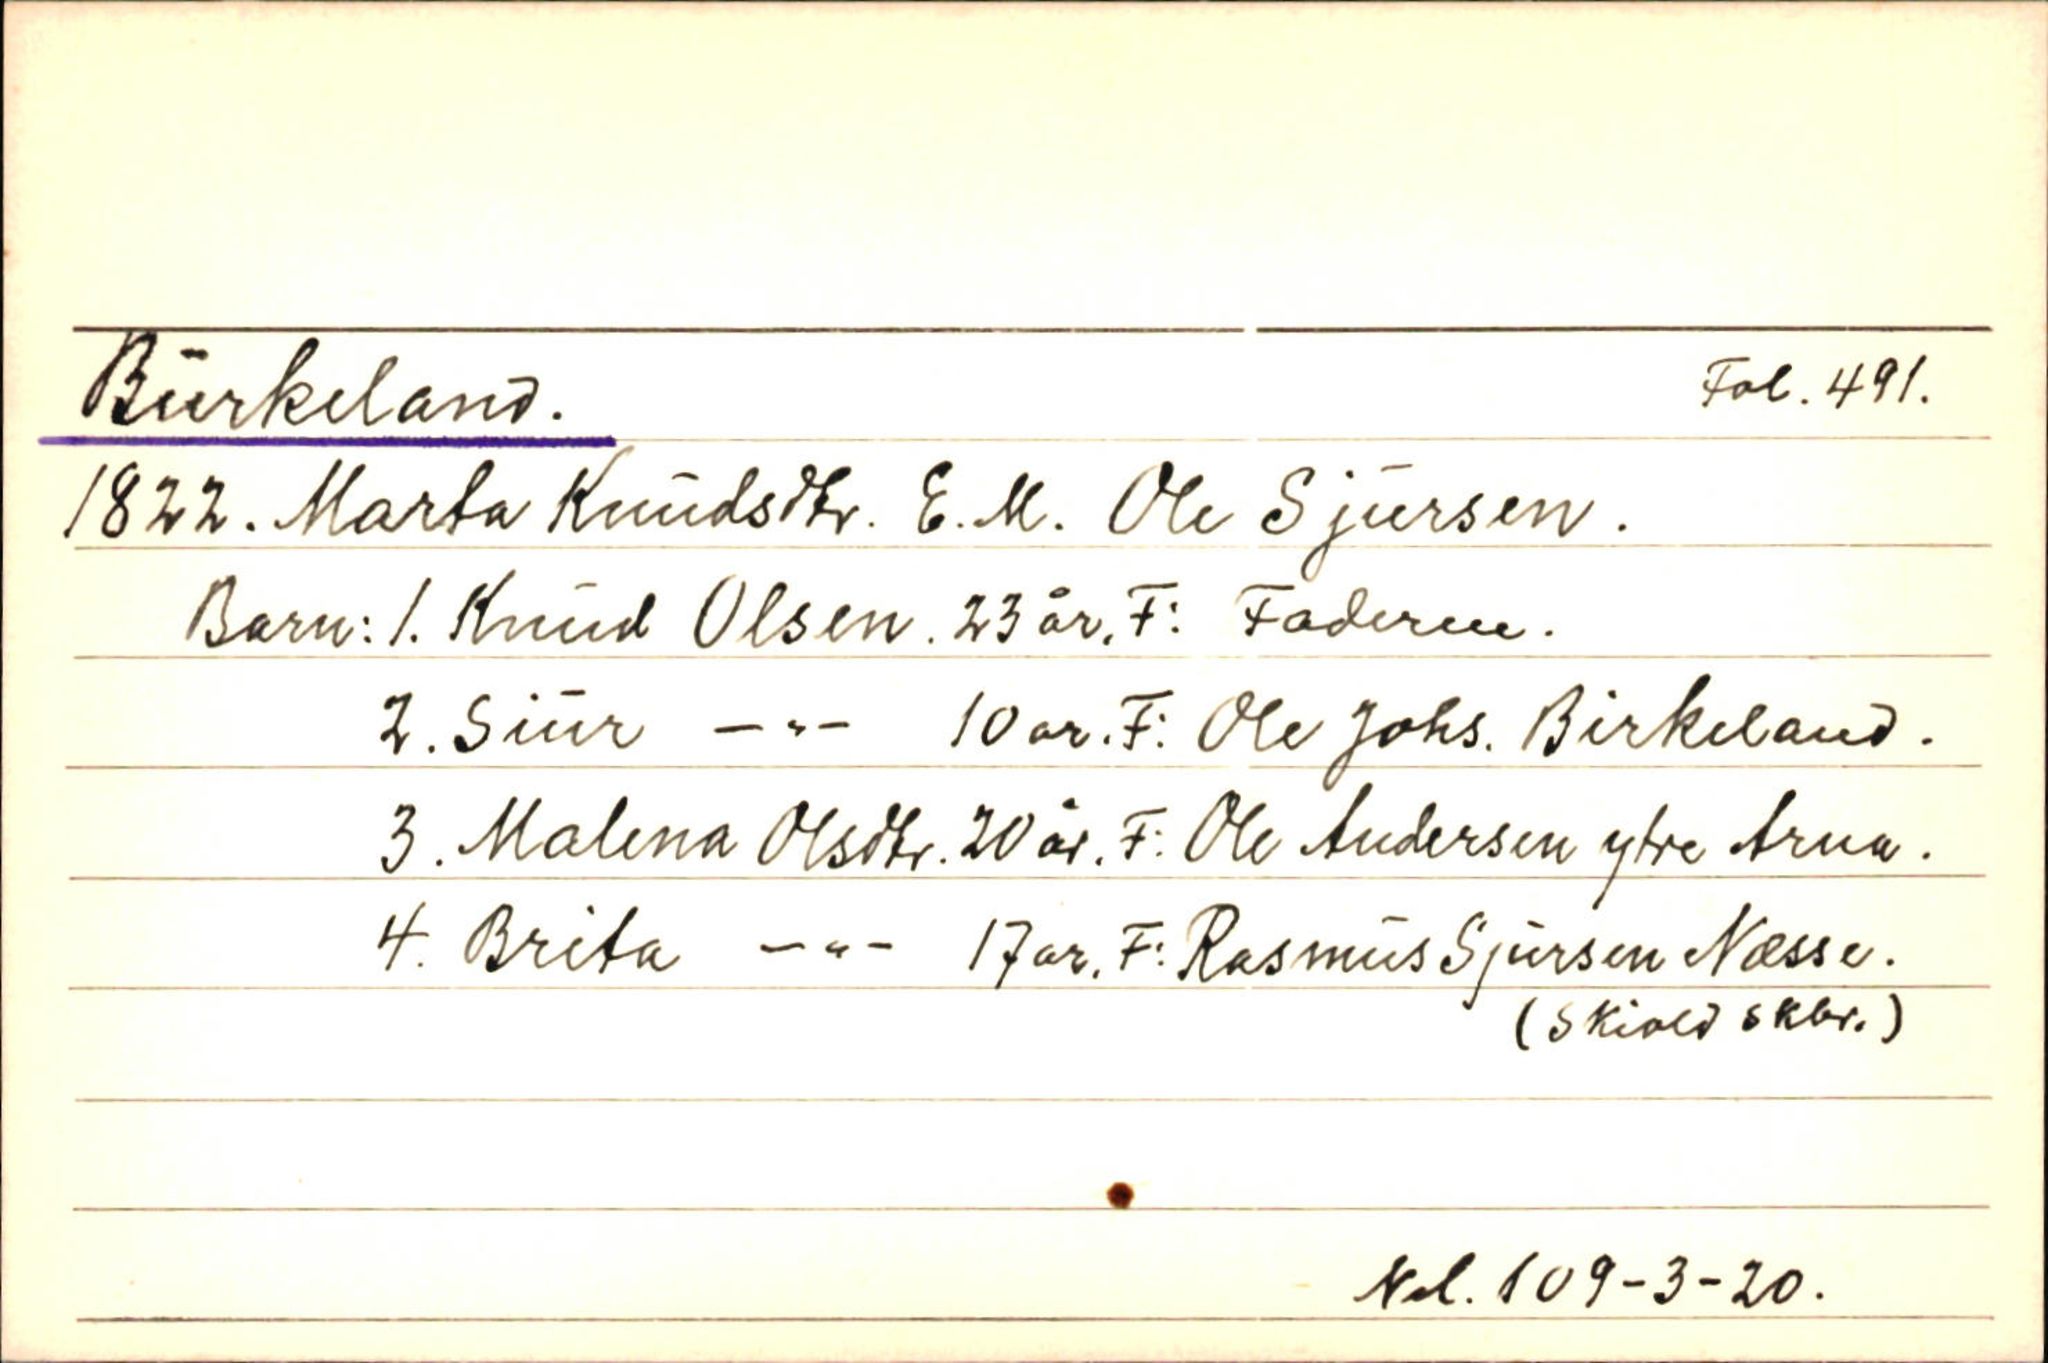 Burkeland. Fol. 491.
1822. Marta Knudsdtr. E.M. Ole Sjursen.
Barn: 1. Knud Olsen. 23 år. F: Faderen.
2. Siur -"- 10 ar. F: Ole Johs. Birkeland.
3. Malena Olsdtr. 20 år. F: Ole Andersen ytre Arna.
4. Brita -"- 17 ar. F: Rasmus Sjursen Næsse.
(Skiold skbr.)
Nl. 109-3-20.